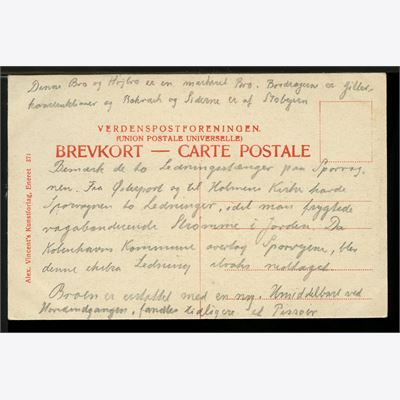 Denne Bro og Højbro er en markant Bro. Brodragerne er Gitter-
konstruktioner og Rækværk og Siderne er af Støbejern
VERDENSPOSTFORENINGEN.
(UNION POSTALE UNIVERSELLE)
BREVKORT — CARTE POSTALE
Bemærk de to Ledningsstænger paa Sporvog-
nen. Fra Østerport og til Holmens Kirke havde
Sporvognen to Ledninger, idet man frygtede
vagabonderende Strømme i Jorden. Da
Københavns Kommune overtog Sporvejene, blev
denne ekstra Ledning straks nedtaget
Broen er erstattet med en ny. Umiddelbart ved
fandtes tidligere et Pissoir
Alex. Vincent's Kunstforlag, Eneret 271